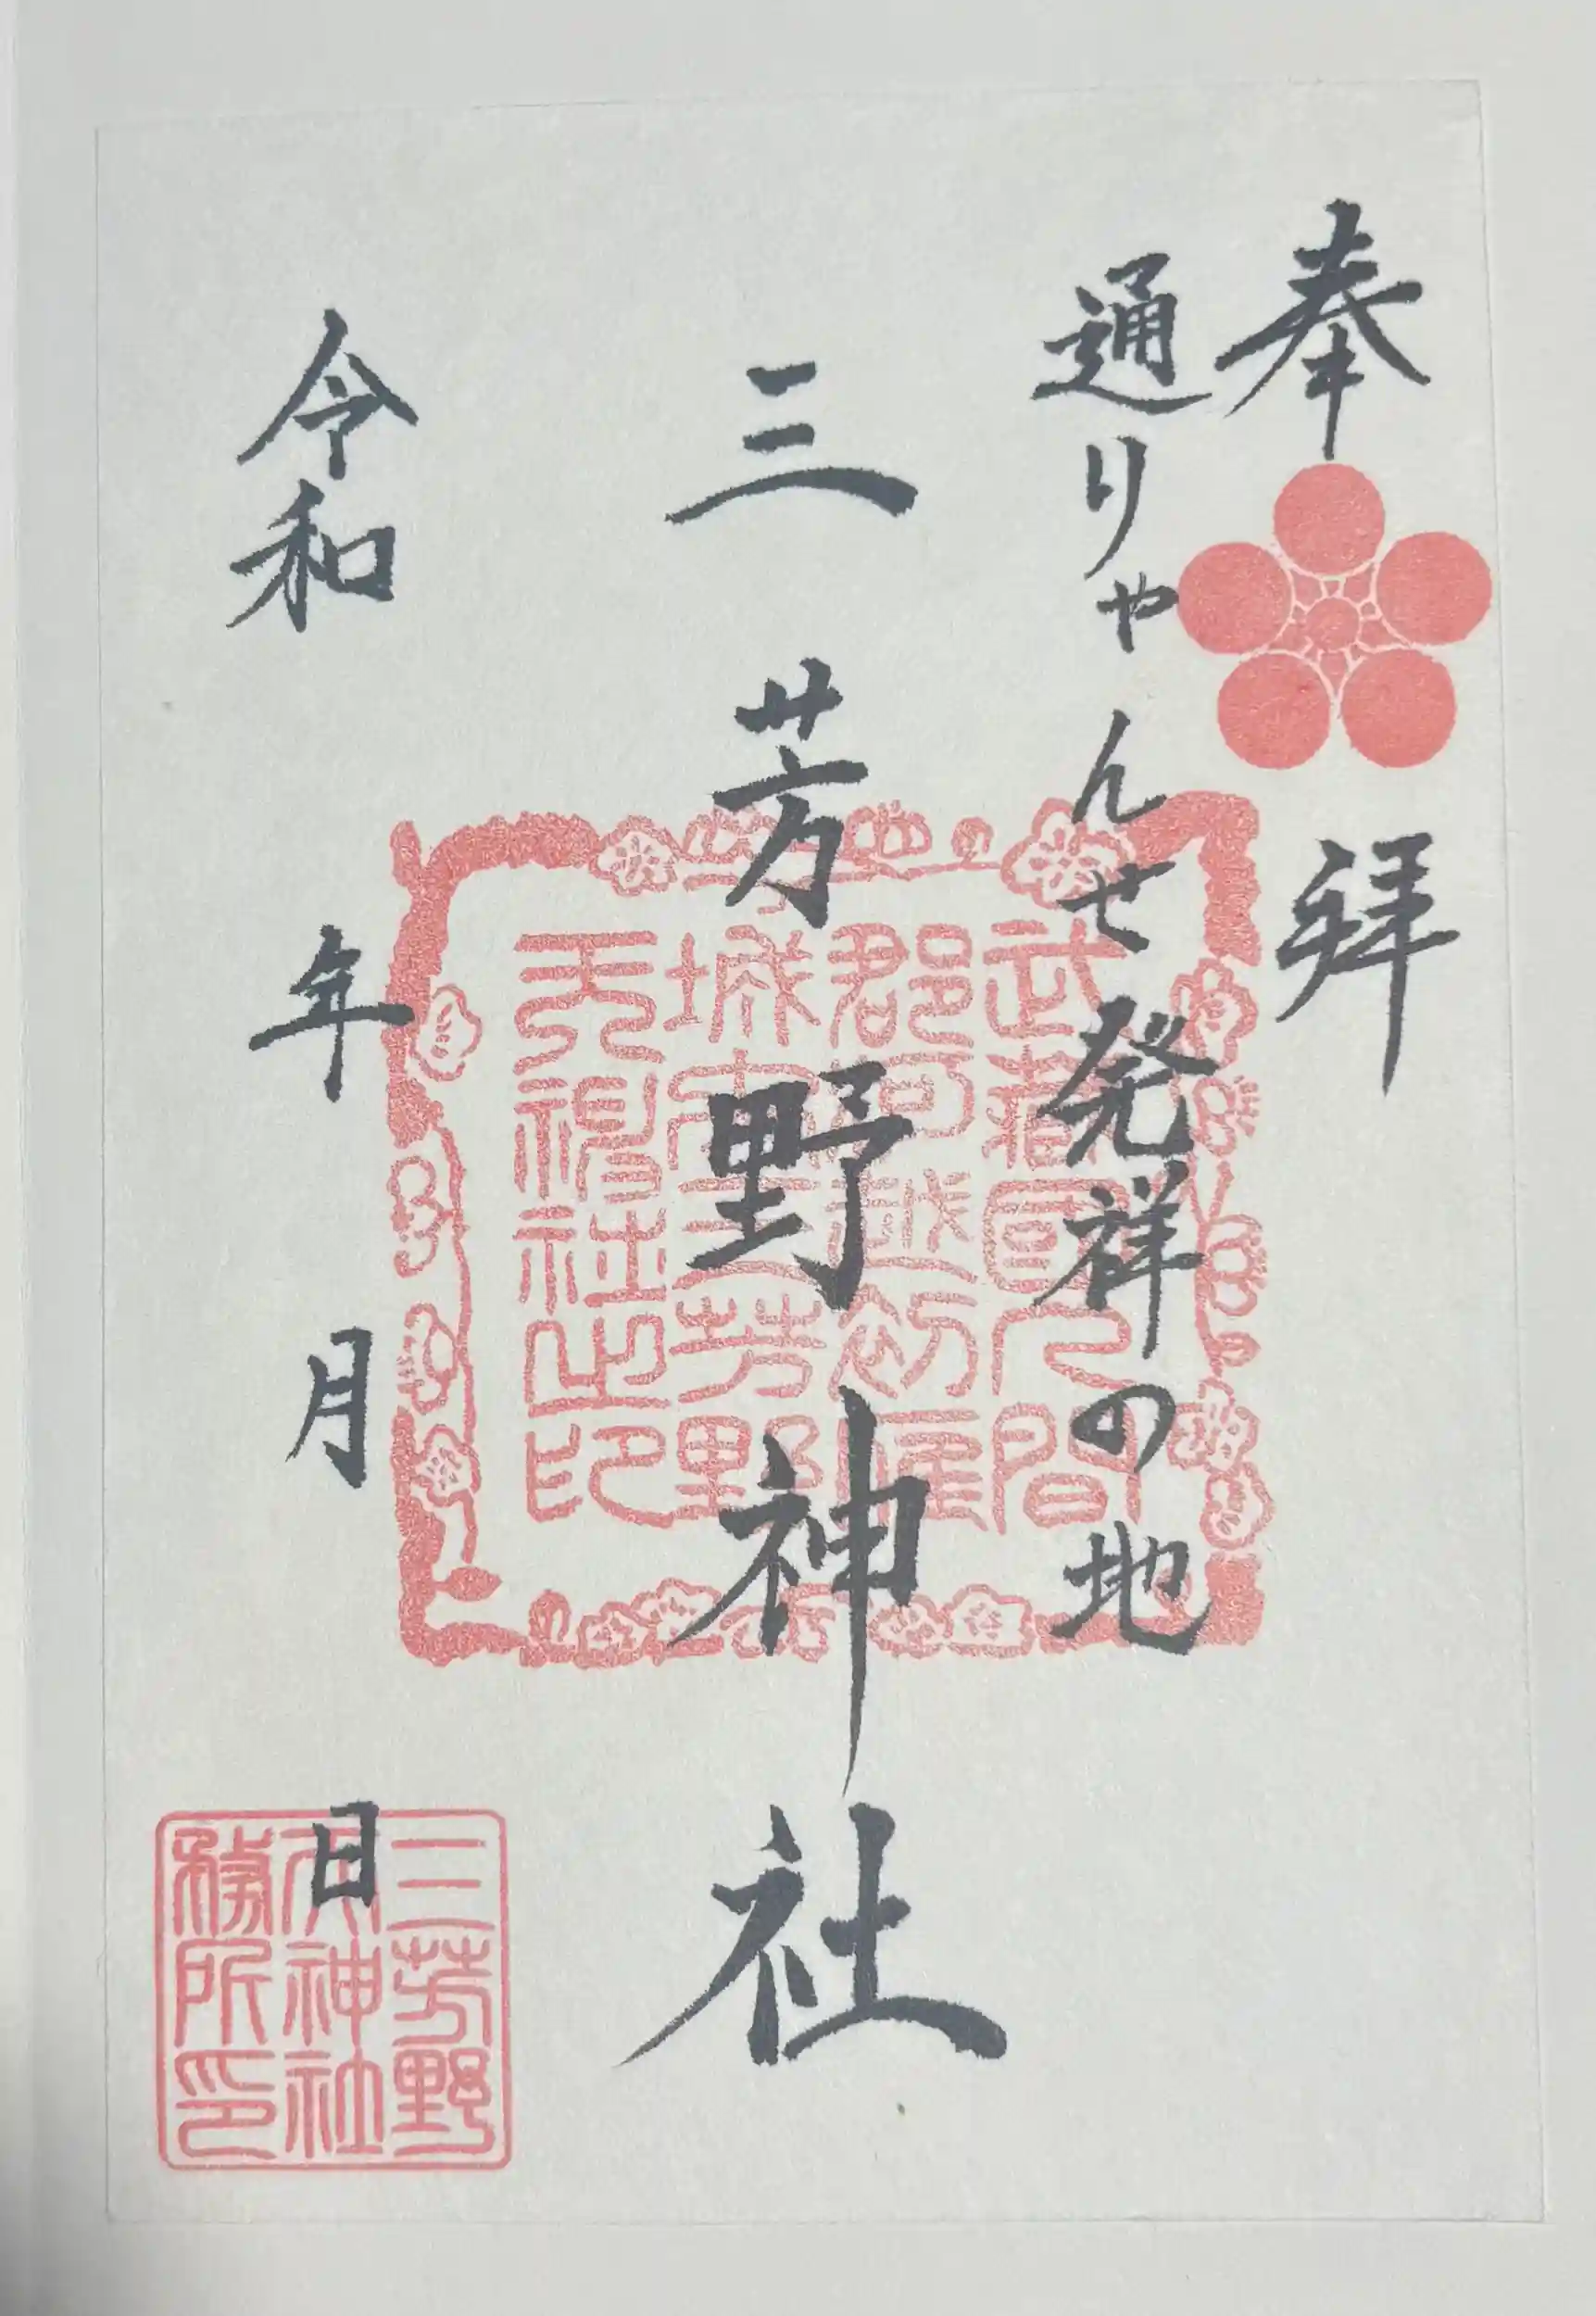 奉拝
通りゃんせ発祥の地
三芳野神社
令和 年 月 日
武蔵國入間
郡河越初雁
城内三芳野
天神社之印
三芳野
天神社
務所印